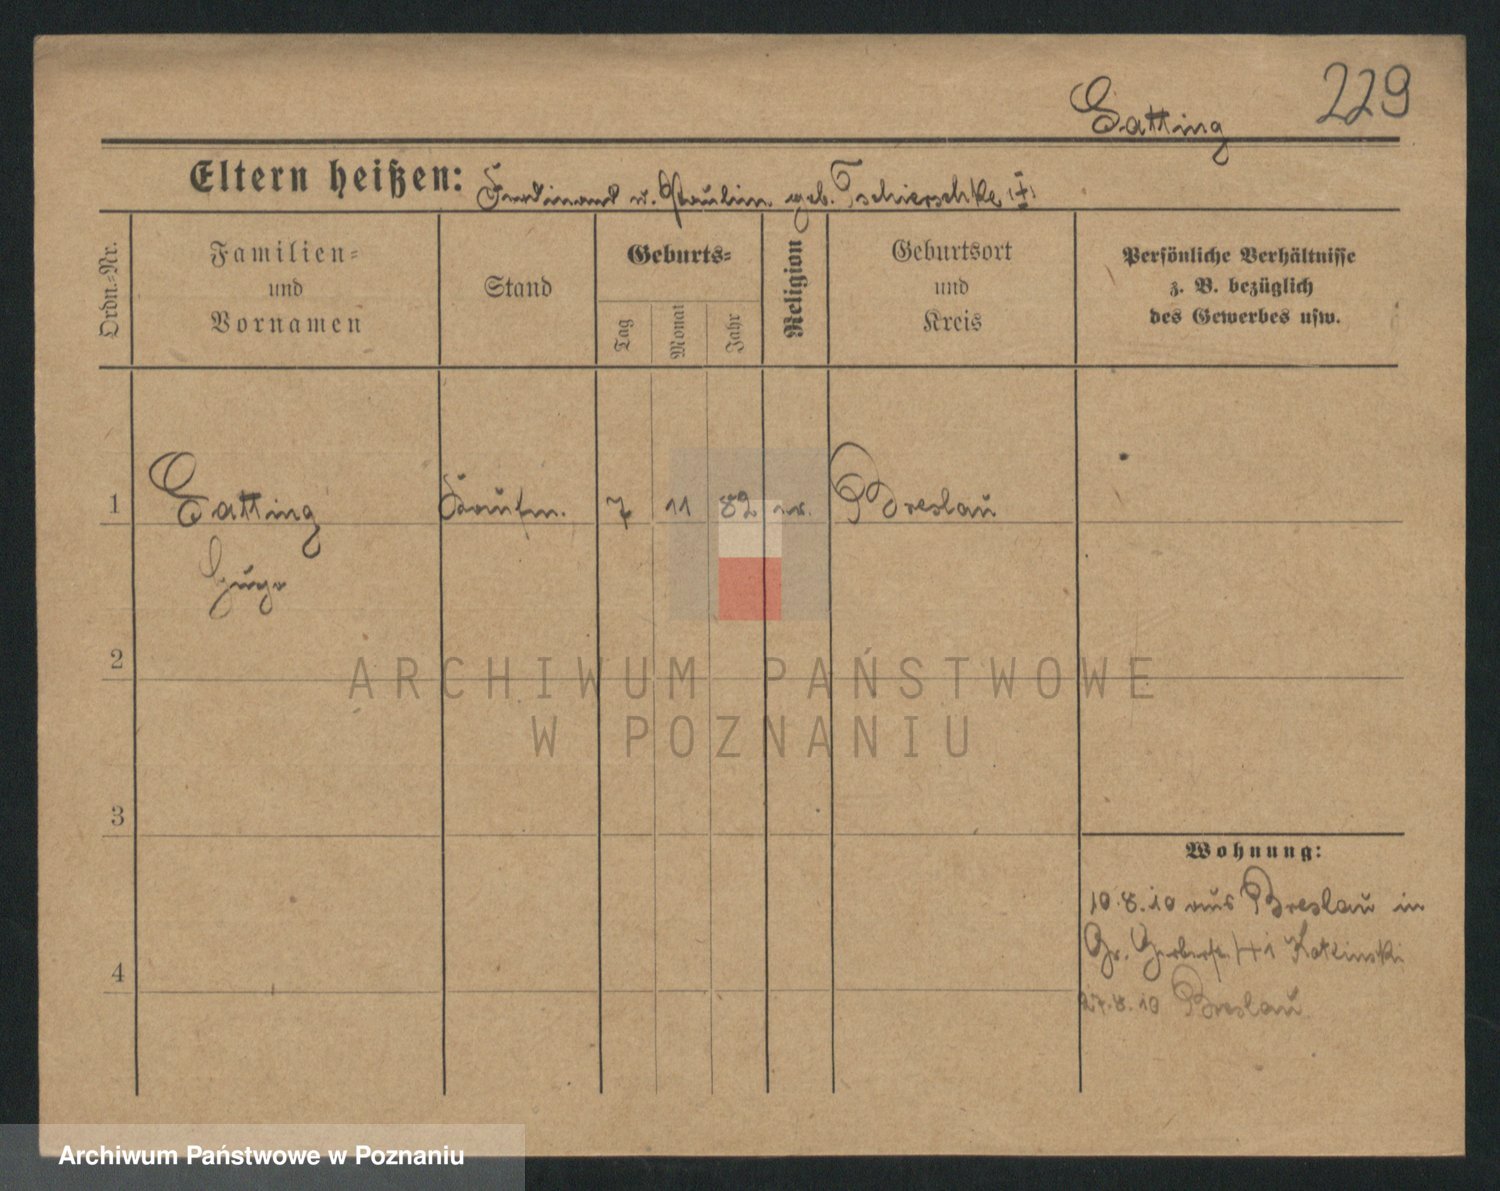 229
Gatting
Eltern heißen: Ferdinand u. Paulin. geb. Tschierschke
Ordn.-Nr.
Familien-
und
Vornamen
Stand
Geburts-
Tag
Monat
Jahr
Religion
Geburtsort
und
Kreis
Persönliche Verhältnisse
z. B. bezüglich
des Gewerbes usw.
1 Gatting Kaufm. 7 11 82 Breslau
Hugo
2
3
4
Wohnung:
10.8.10 aus Breslau in
Gr. Gerberstr.
27.8.10 Breslau
ARCHIWUM PAŃSTWOWE
W POZNANIU
Archiwum Państwowe w Poznaniu